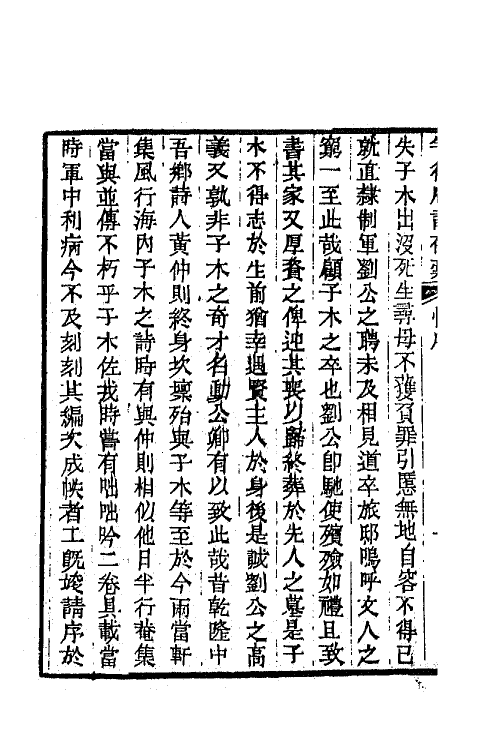 失子木出沒死生尋母不獲負罪引慝無地自容不得已
就直隸制軍劉公之聘未及相見道卒旅邸嗚呼文人之
窮一至此哉顧子木之卒也劉公卽馳使殯殮如禮且致
書其家又厚賚之俾迎其喪以歸終葬於先人之墓是子
木不得志於生前猶幸遇賢主人於身後是誠劉公之高
義又孰非子木之奇才名動公卿有以致此哉昔乾隆中
吾鄉詩人黃仲則終身坎壈殆與子木等至於今兩當軒
集風行海內子木之詩時有與仲則相似他日半行菴集
當與並傳不朽乎子木佐戎時嘗有咄咄吟二卷具載當
時軍中利病今不及刻刻其編次成帙者工旣竣請序於